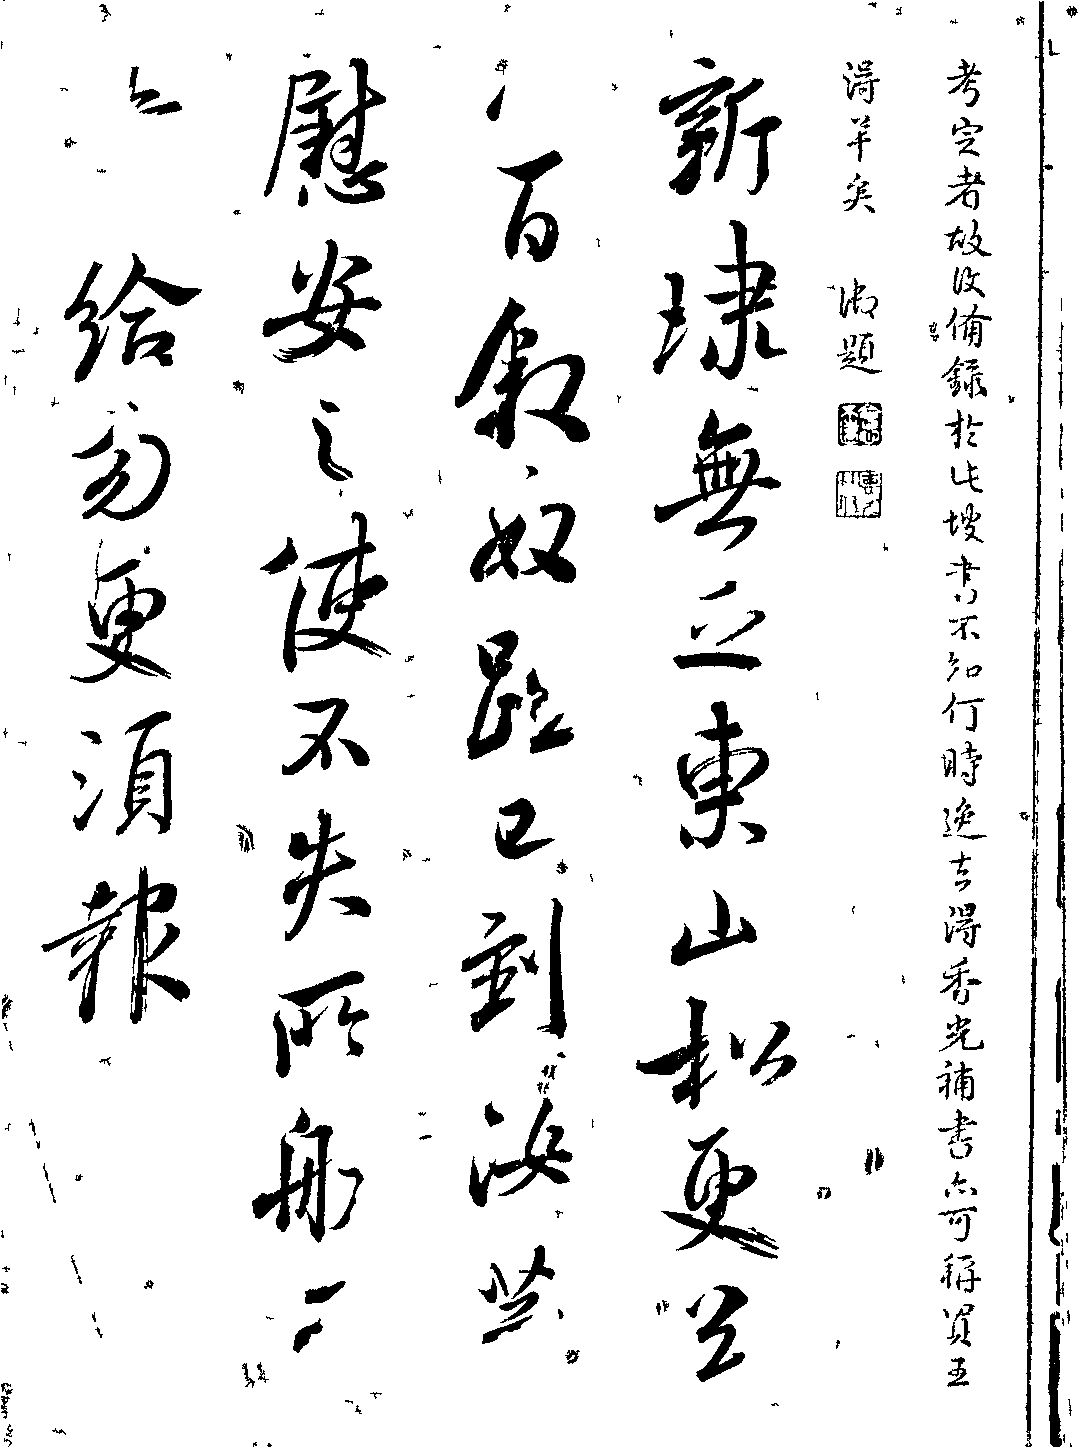 考定者故備録於此坡書不知何時逸去得香光補書亦可稱買王
得羊矣 御題
新埭無乏東山松更送
百叙奴已到汝
慰安之使不失所船
給勿更須報